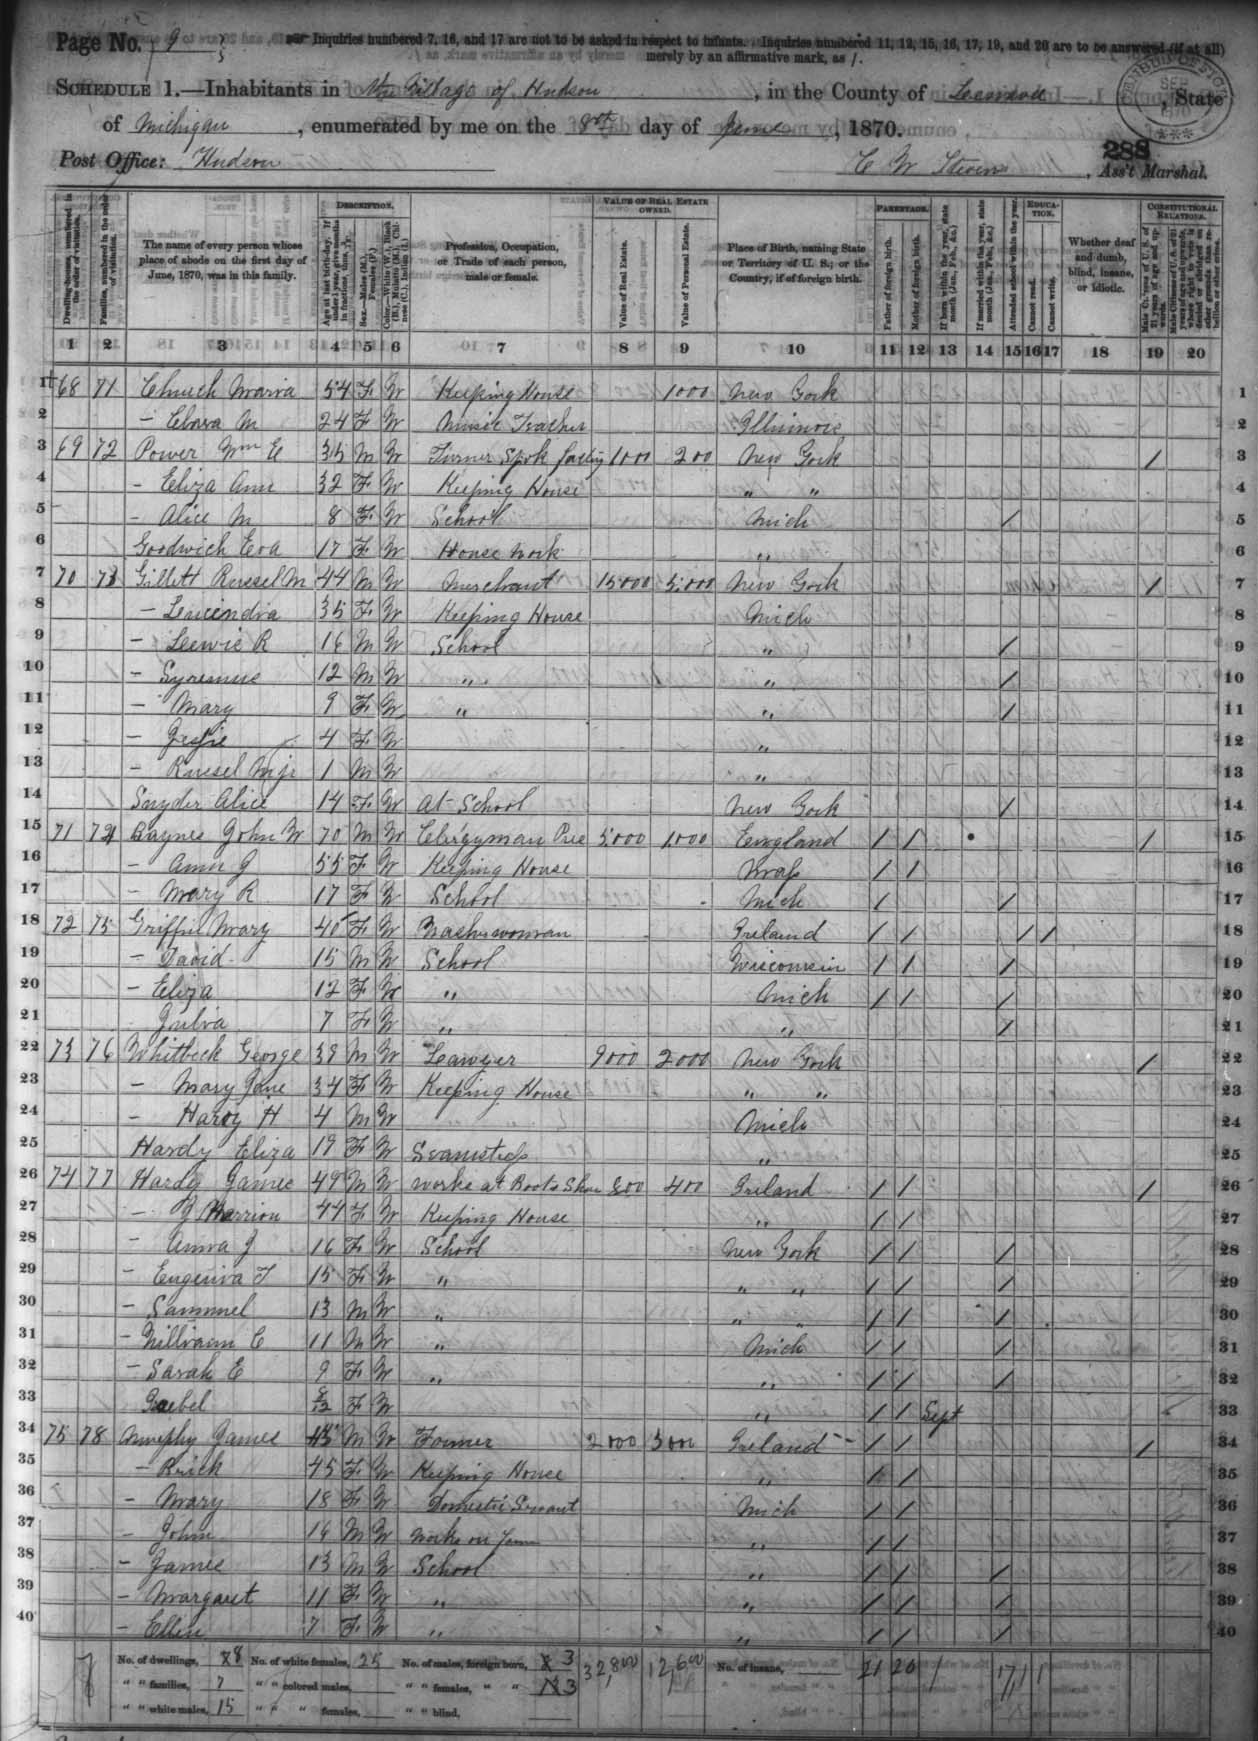 Page No. 9
Inquiries numbered 7, 16, and 17 are not to be asked in respect to infants. Inquiries numbered 11, 12, 15, 16, 17, 19, and 20 are to be answered (if at all)
merely by an affirmative mark, as /.
SCHEDULE 1.—Inhabitants in the Village of Hudson, in the County of Lenawee, State
of Michigan, enumerated by me on the 8th day of June, 1870.
288
Post Office: Hudson C W Stevens, Ass't Marshal.
DESCRIPTION. VALUE OF REAL ESTATE OWNED. PARENTAGE. EDUCATION. CONSTITUTIONAL RELATIONS.
Dwelling-houses, numbered in the order of visitation.
Families, numbered in the order of visitation.
The name of every person whose place of abode on the first day of June, 1870, was in this family.
Age at last birth-day. If under 1 year, give months in fractions, thus, 3/12.
Sex.—Males (M.), Females (F.)
Color.—White (W.), Black (B.), Mulatto (M.), Chinese (C.), Indian (I.)
Profession, Occupation, or Trade of each person, male or female.
Value of Real Estate.
Value of Personal Estate.
Place of Birth, naming State or Territory of U. S.; or the Country, if of foreign birth.
Father of foreign birth.
Mother of foreign birth.
If born within the year, state month (Jan., Feb., &c.)
If married within the year, state month (Jan., Feb., &c.)
Attended school within the year.
Cannot read.
Cannot write.
Whether deaf and dumb, blind, insane, or idiotic.
Male Citizens of U. S. of 21 years of age and upwards.
1 2 3 4 5 6 7 8 9 10 11 12 13 14 15 16 17 18 19 20
1 68 71 Church Maria 54 F W Keeping House 1000 New York 1
2 — Clara M 24 F W Music Teacher Illinois 2
3 69 72 Power Wm E 35 M W Turner Spok factry 1000 200 New York / 3
4 — Eliza Ann 32 F W Keeping House " " 4
5 — Alice M 8 F W School Mich / 5
6 Goodwich Eva 17 F W House Work " 6
7 70 73 Gillett Russel M 44 M W Merchant 15000 5000 New York / 7
8 — Lucindia 35 F W Keeping House Mich 8
9 — Lewis R 16 M W School " / 9
10 — Syrenus 12 M W " " / 10
11 — Mary 9 F W " " / 11
12 — Jessie 4 F W " 12
13 — Russel M jr 1 M W " 13
14 Snyder Alice 14 F W At School New York / 14
15 71 74 Baynes John W 70 M W Clergyman Pres 5000 1000 England / / / 15
16 — Ann J 55 F W Keeping House Mass / / 16
17 — Mary R 17 F W School Mich / / 17
18 72 75 Griffin Mary 40 F W Washerwoman Ireland / / / / 18
19 — David 15 M W School Wisconsin / / / 19
20 — Eliza 12 F W " Mich / / / 20
21 Julia 7 F W " " / 21
22 73 76 Whitbeck George 39 M W Lawyer 9000 2000 New York / 22
23 — Mary Jane 34 F W Keeping House " " 23
24 — Harry H 4 M W Mich 24
25 Hardy Eliza 19 F W Seamstress " 25
26 74 77 Hardy James 49 M W Works at Boots Shoe 800 400 Ireland / / / 26
27 — Marrion 44 F W Keeping House " / / 27
28 — Anna J 16 F W School New York / / / 28
29 — Eugenia T 15 F W " " " / / / 29
30 — Sammuel 13 M W " " " / / / 30
31 — William C 11 M W " Mich / / / 31
32 — Sarah E 9 F W " " / / / 32
33 Isabel 8/12 F W " / / Sept 33
34 75 78 Murphy James 45 M W Farmer 2000 3000 Ireland / / / 34
35 — 45 F W Keeping House " / / 35
36 — Mary 18 F W Domestic Servant Mich / / 36
37 — John 16 M W Works on Farm " / / 37
38 — James 13 M W School " / / / 38
39 — Margaret 11 F W " " / / / 39
40 — Ellen 7 F W " " / / / 40
No. of dwellings, 8 No. of white females, 25 No. of males, foreign born, 3 No. of insane, 21 20 1 17 1 1
" " families, 7 " " colored males, " " females, " " 3
" " white males, 15 " " " females, " " blind,